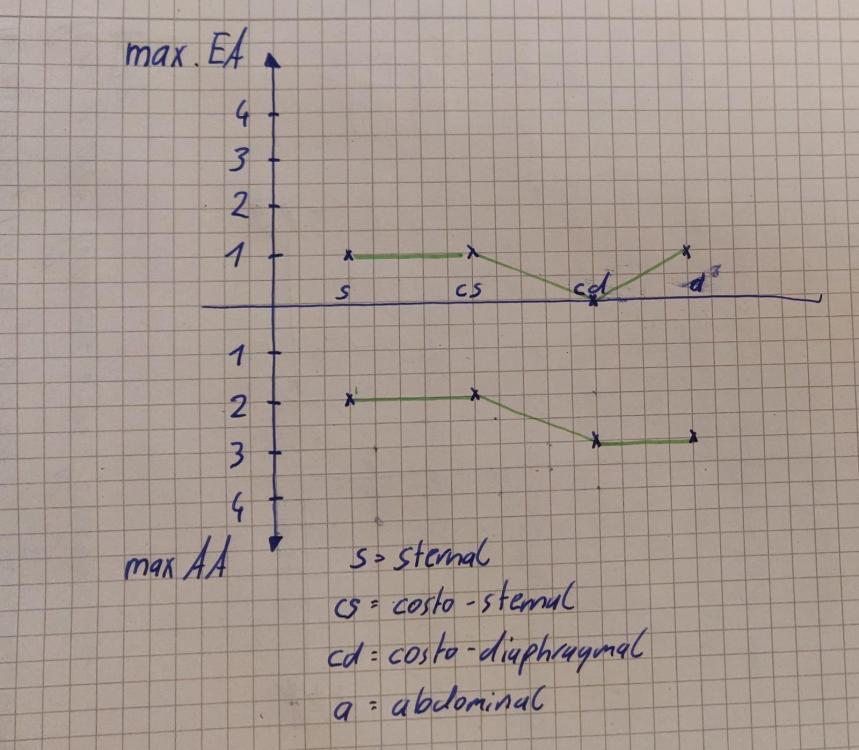 max. EA
4
3
2
1
s cs cd
1
2
3
4
max AA
s = sternal
cs = costo-sternal
cd = costo-diaphragmal
a = abdominal